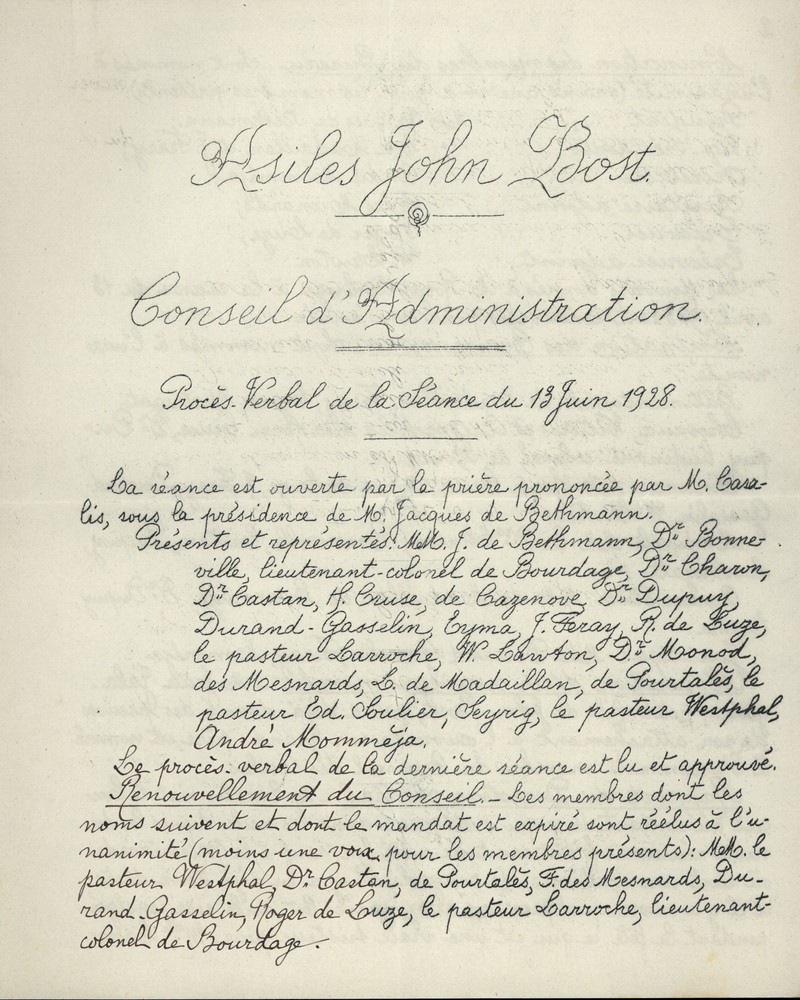 Asiles John Bost.
Conseil d'Administration.
Procès-Verbal de la Séance du 13 Juin 1928.
La séance est ouverte par la prière prononcée par M. Casa-
lis, sous la présidence de M. Jacques de Bethmann.
Présents et représentés: MM. J. de Bethmann, Dr Bonne-
ville, lieutenant-colonel de Bourdage, Dr Charon,
Dr Castan, H. Cruse, de Cazenove, Dr Dupuy,
Durand-Gasselin, Eyma, J. Feray, R. de Luze,
le pasteur Larroche, W. Lawton, Dr Monod,
des Mesnards, L. de Madaillan, de Pourtalès, le
pasteur Ed. Soulier, Seyrig, le pasteur Westphal,
André Momméja.
Le procès-verbal de la dernière séance est lu et approuvé.
Renouvellement du Conseil. - Les membres dont les
noms suivent et dont le mandat est expiré sont réélus à l'u-
nanimité (moins une voix, pour les membres présents): MM. le
pasteur Westphal, Dr Castan, de Pourtalès, F. des Mesnards, Du-
rand-Gasselin, Roger de Luze, le pasteur Larroche, lieutenant-
colonel de Bourdage.